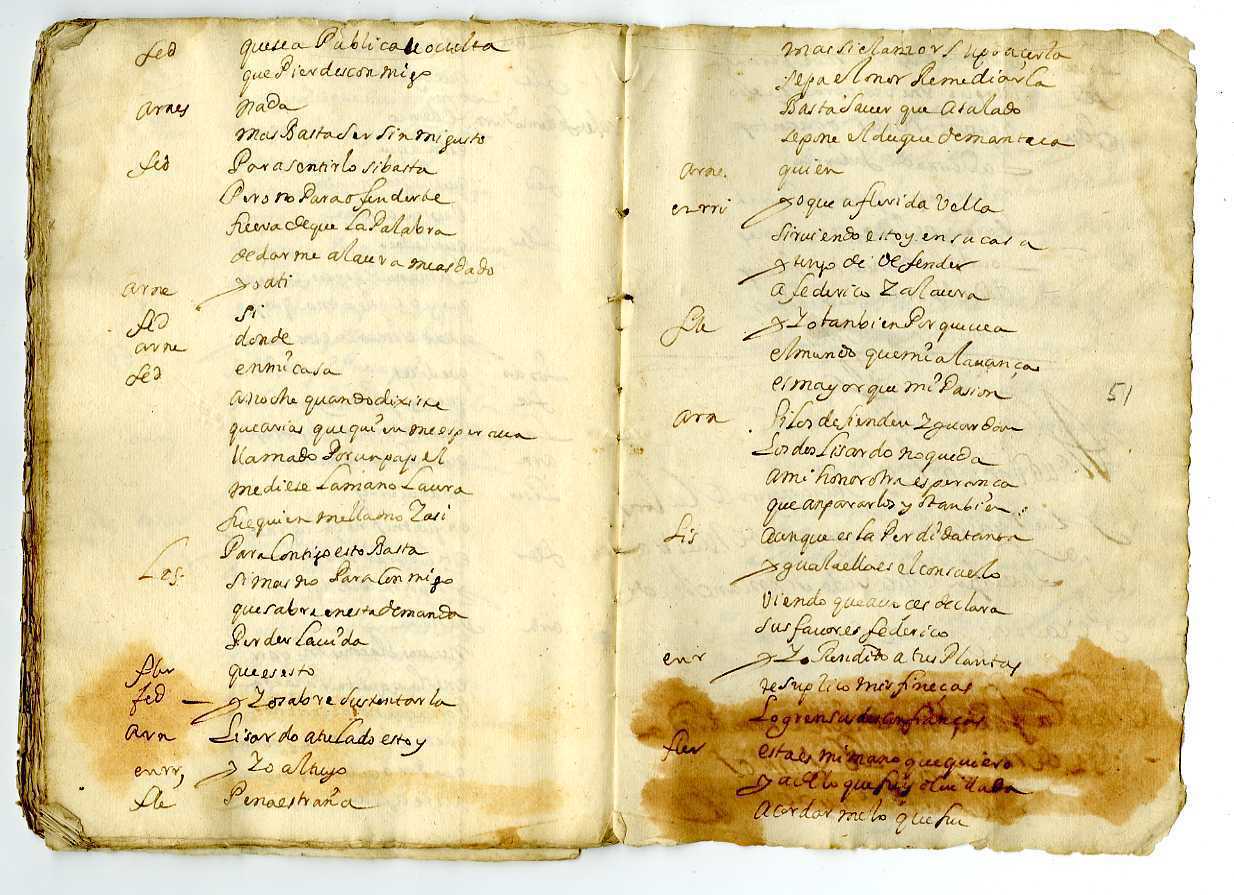 fed quesea Publica uoculta
que Pierdes con migo
arnes nada
mas Basta Ser sin mi gusto
fed Para sentirlo si basta
Pero no Para ofenderte
fuera de que La Palabra
de darme a laura meas dado
arne yo ati
fed si
arne donde
fed en mi casa
anoche quando dixiste
que arias que quien me esperaua
llamado Por un papel
me diese La mano Laura
fue quien me llamo Y asi
Para Contigo esto Basta
Les. si mas no Para Con migo
que sabra en esta demanda
Perder La uida
fler que es esto
fed — y Yo sabre Sustentarla
arn Lisardo a tu lado estoy
enrr, y Yo al tuyo
fle Pena estraña
mas si el amor supo açerla
sepa el onor Remediarla
Basta sauer que a su lado
se pone el duque de mantua
arne. quien
enrri yo que a flerida Vella
siruiendo estoy en su casa
y tengo de defender
a federico Y a laura
fle y Yo tanbien Porque uea
el mundo que mi alauança
es mayor que mi Pasion
51
arn si los defienden Y guardan
Los dos Lisardo no queda
a mi honor otra esperança
que anpararlos yo tanbien.
Lis aunque es La Perdida tanta
ygual a ella es el consuelo
Viendo que a uoces declara
sus fauores federico
enr y Yo Rendido a tus Plantas
te suplico mis fineças
Logren sus desconfianças
fler esta es mi mano que quiero
ya de lo que fuy oluidada
acordarme lo que fue